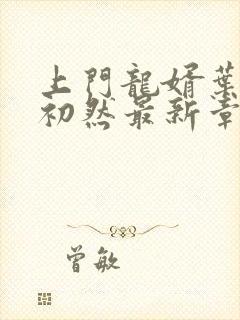 上門龍婿葉
初然最新章
曾敏